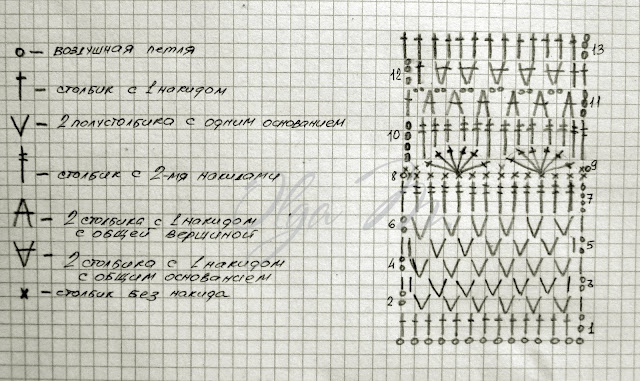 о — воздушная петля
† — столбик с 1 накидом
V — 2 полустолбика с одним основанием
ǂ — столбик с 2-мя накидами
A — 2 столбика с 1 накидом
с общей вершиной
∀ — 2 столбика с 1 накидом
с общим основанием
x — столбик без накида
13
12
11
10
9
8
7
6
5
4
3
2
1
Olga